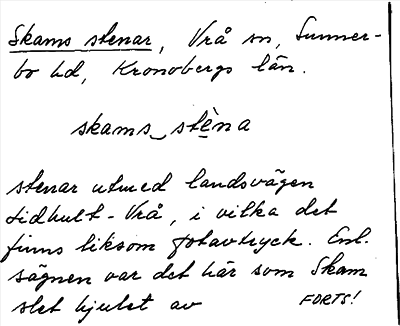 Skams stenar, Vrå sn, Sunner-
bo hd, Kronobergs län.
skams‿stèna
stenar utmed landsvägen
Lidhult - Vrå, i vilka det
finns liksom fotavtryck. Enl.
sägnen var det här som Skam
slet hjulet av FORTS!